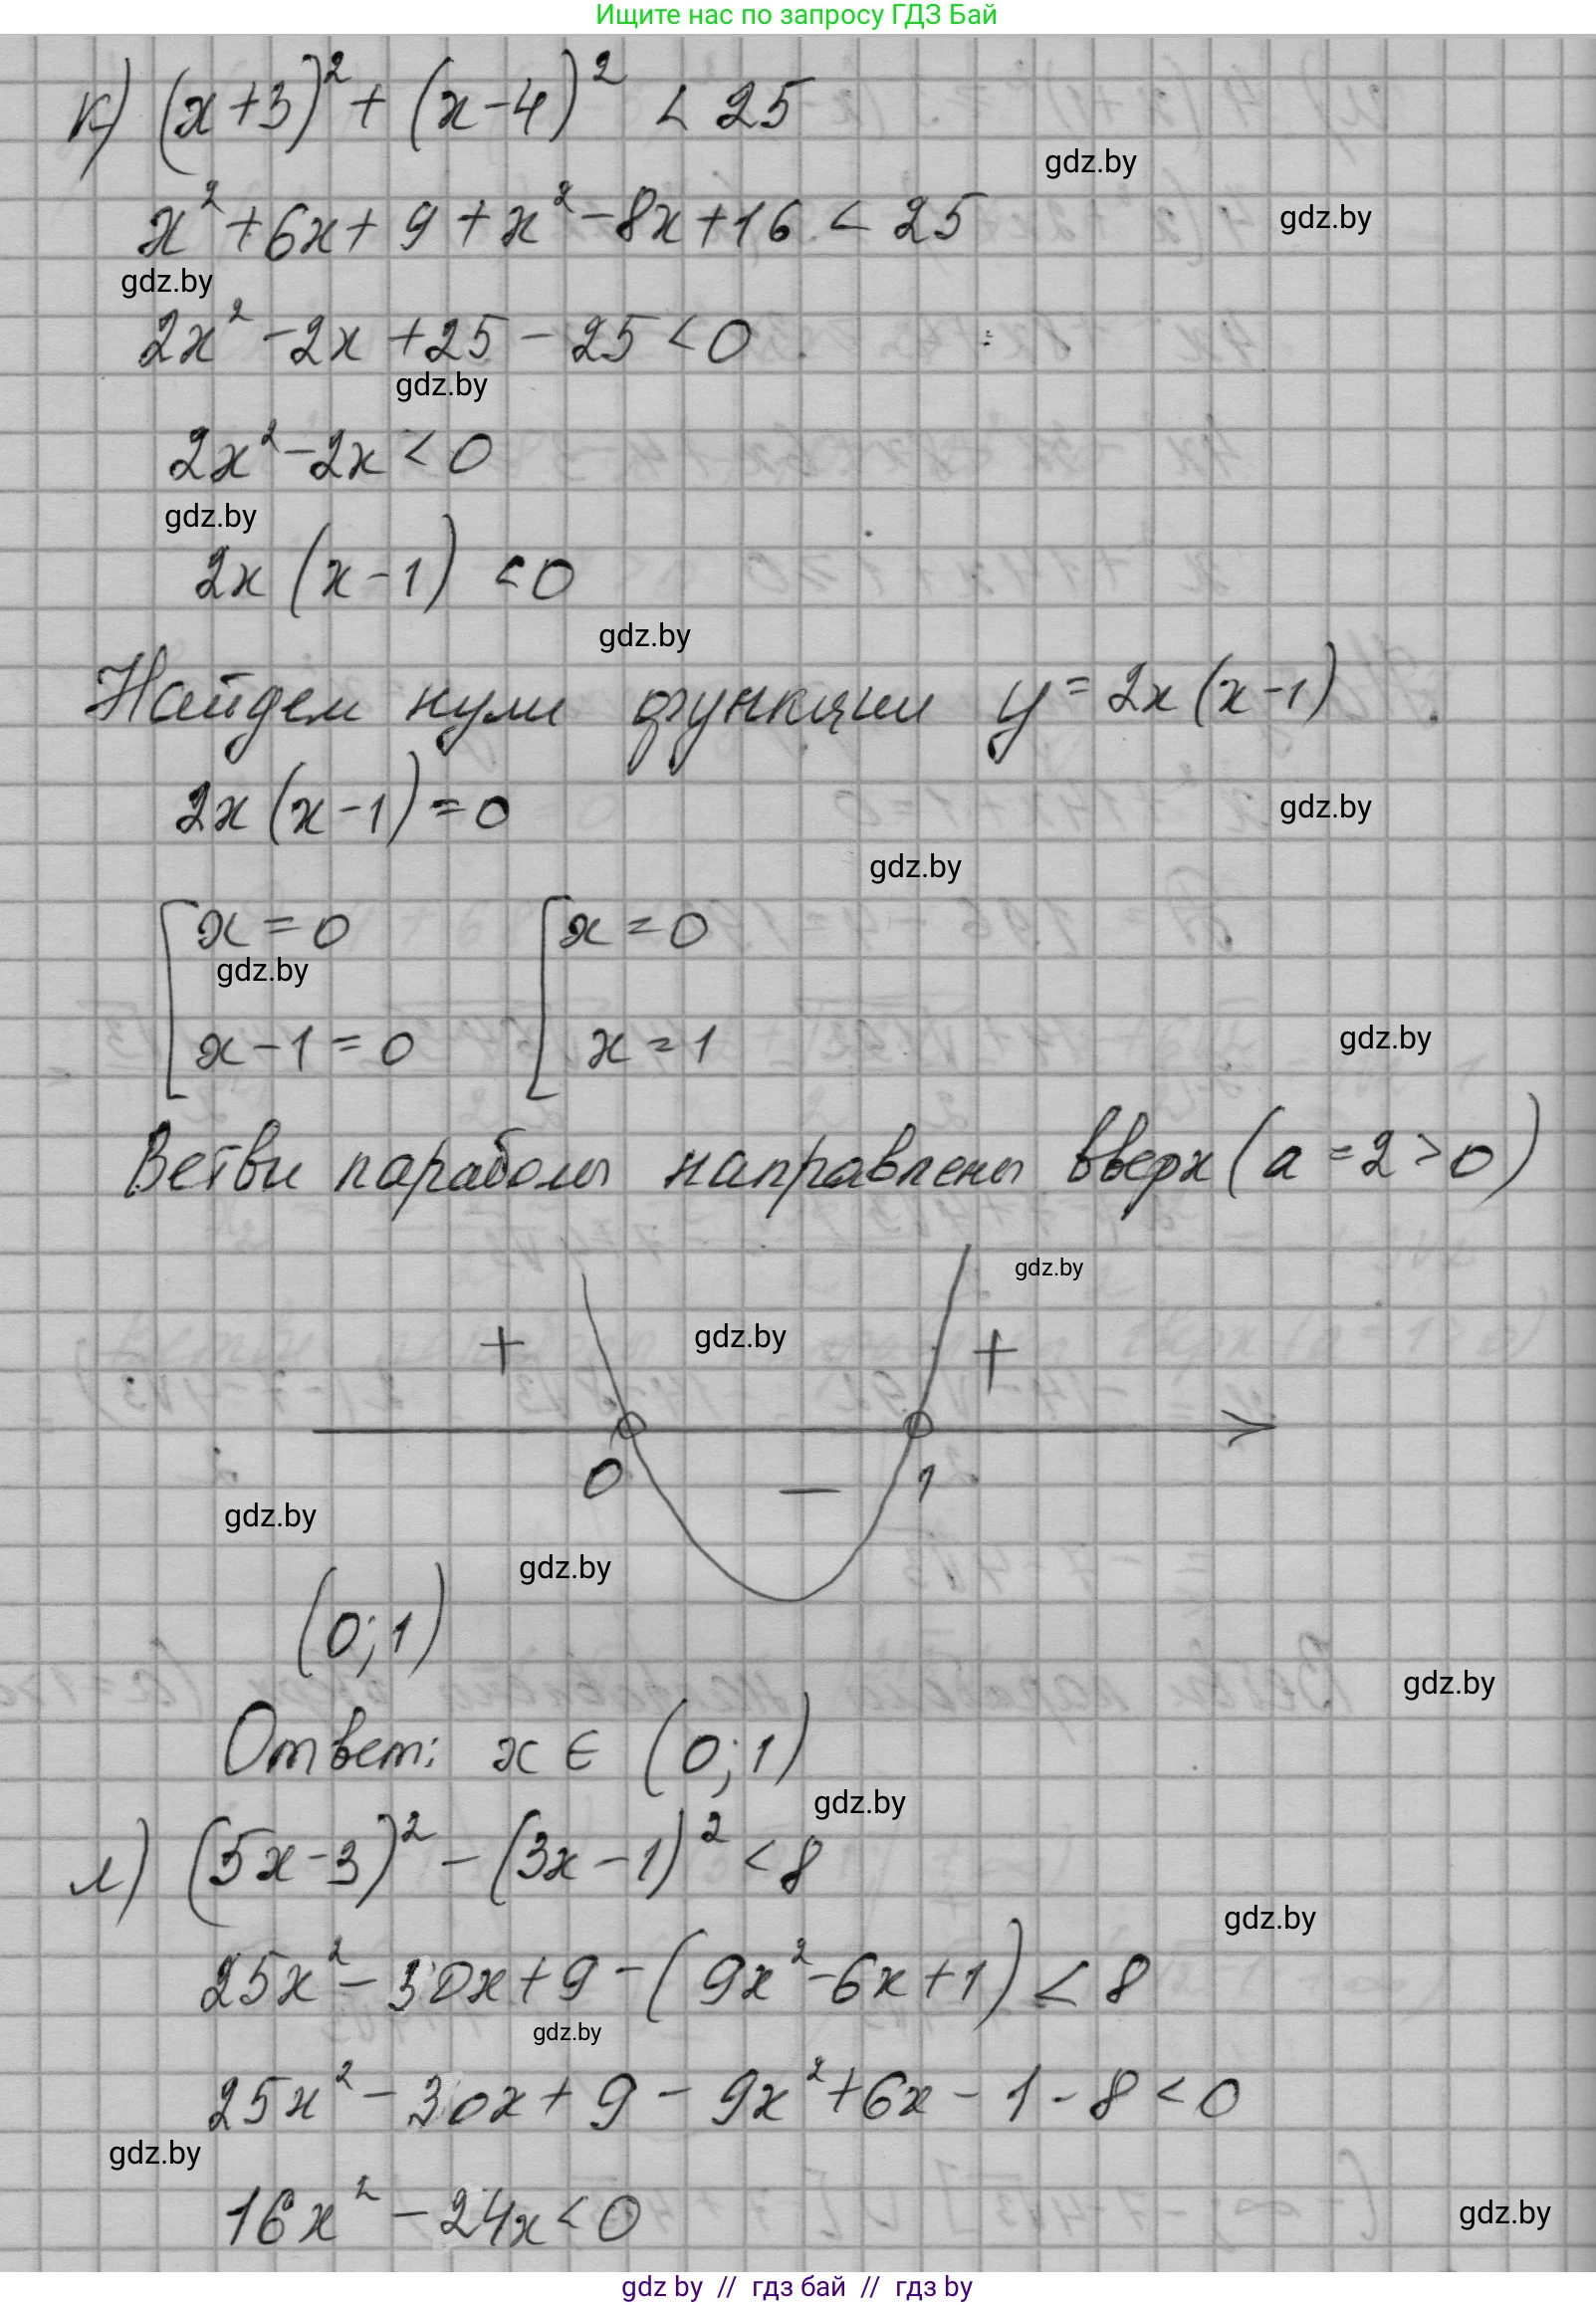 Ищите нас по запросу ГДЗ Бай
к) (x+3)² + (x-4)² < 25
gdz.by
x² + 6x + 9 + x² - 8x + 16 < 25
gdz.by
gdz.by
2x² - 2x + 25 - 25 < 0
gdz.by
2x² - 2x < 0
gdz.by
2x (x-1) < 0
gdz.by
Найдем нули функции y = 2x (x-1)
2x (x-1) = 0
gdz.by
gdz.by
[x = 0 [x = 0
gdz.by
x - 1 = 0 x = 1
gdz.by
Ветви параболы направлены вверх (a = 2 > 0)
gdz.by
+ gdz.by +
0 - 1
gdz.by
gdz.by
(0; 1)
gdz.by
Ответ: x ∈ (0; 1)
gdz.by
л) (5x-3)² - (3x-1)² < 8
gdz.by
25x² - 30x + 9 - (9x² - 6x + 1) < 8
gdz.by
25x² - 30x + 9 - 9x² + 6x - 1 - 8 < 0
gdz.by
16x² - 24x < 0
gdz.by
gdz by // гдз бай // гдз by